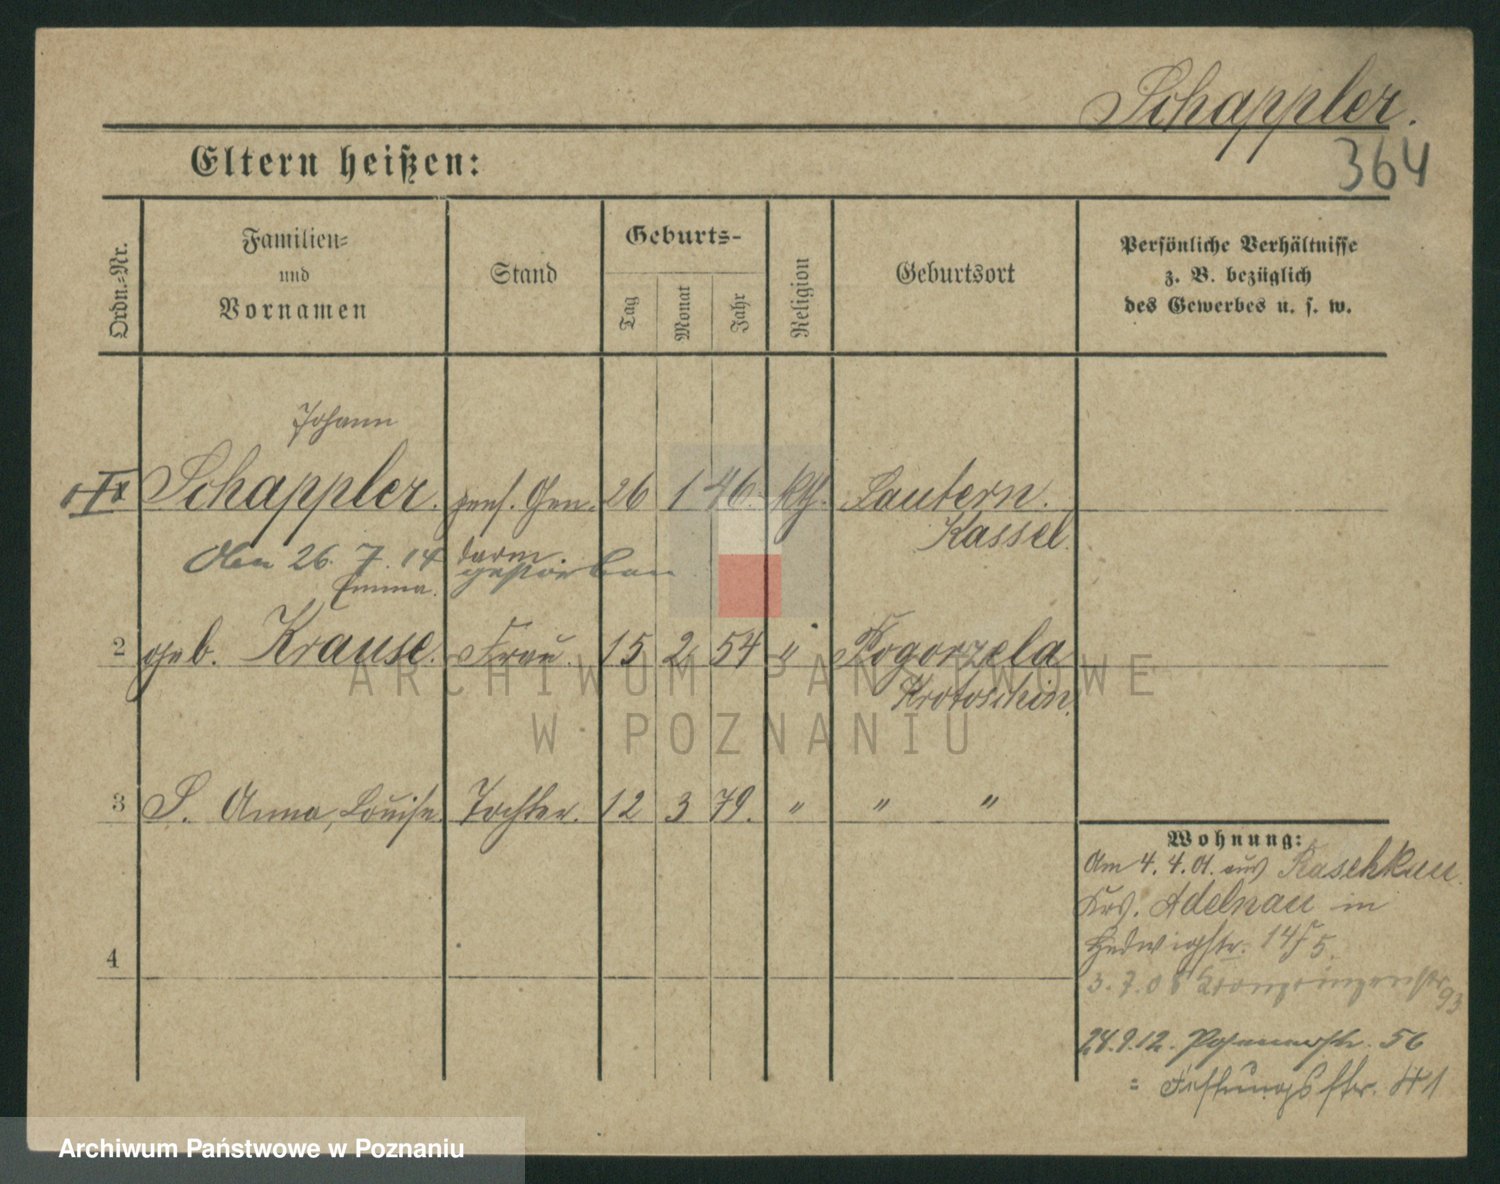 Schappler.
364
Eltern heißen:
Ordn.-Nr.
Familien-
und
Vornamen
Stand
Geburts-
Tag
Monat
Jahr
Religion
Geburtsort
Persönliche Verhältnisse
z. B. bezüglich
des Gewerbes u. s. w.
Johann
Schappler. pens. Gen- 26 1 46. kth. Lautern.
darm. Kassel.
26. 7. 14 gestorben
Emma.
2 geb. Krause. Frau. 15 2 54 " Pogorzela
Krotoschin.
3 S. Anna, Louise. Tochter. 12 3 79. " " "
4
Wohnung:
Am 4. 4. 01. aus Raschkau.
Krs. Adelnau in
Hedwigstr. 14 5.
3. 7. 08 Kronprinzenstr. 93
24. 9. 12. Posenerstr. 56
= Festungsstr.
ARCHIWUM PAŃSTWOWE
W POZNANIU
Archiwum Państwowe w Poznaniu